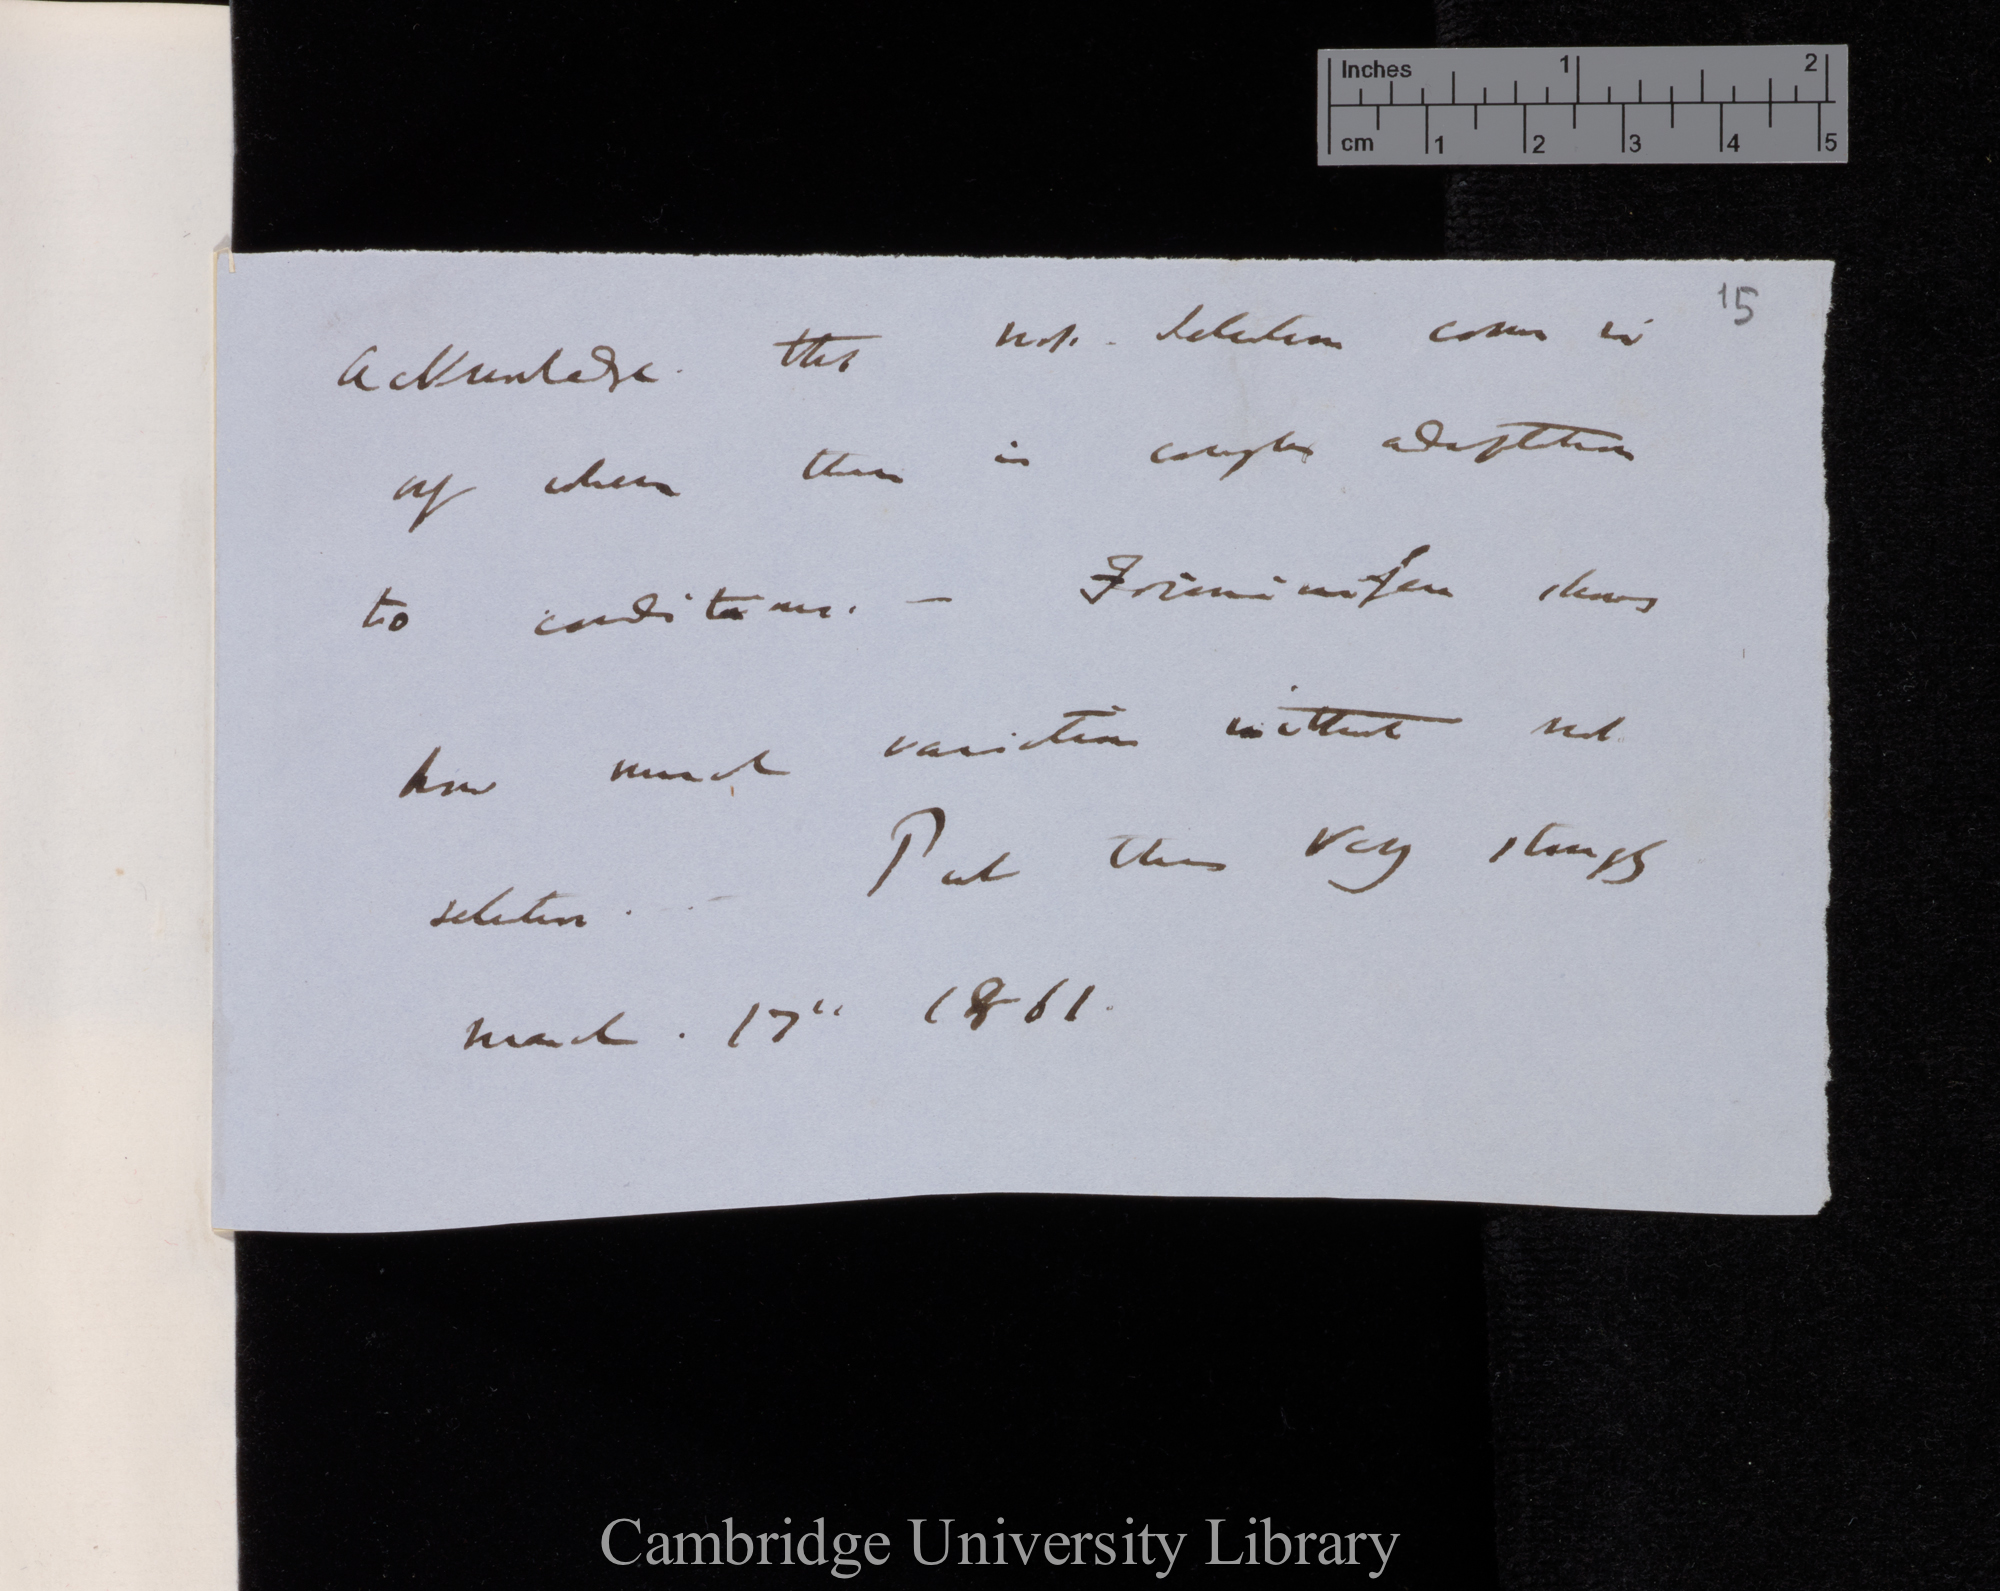 Inches 1 2
cm 1 2 3 4 5
15
Acknowledge that nat. selection comes in
only where there is complex adaptation
to conditions. — Foraminifera shows
how much variation without nat.
selection. — Put this very strongly
March. 17" 1861.
Cambridge University Library